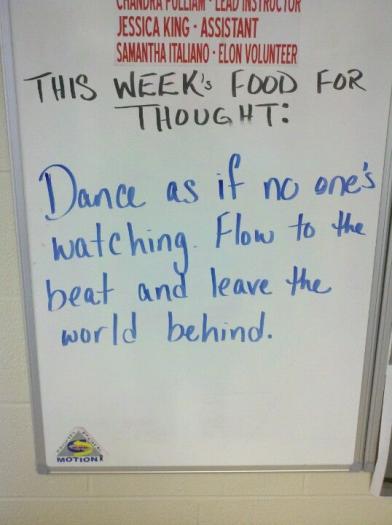 CHANDRA PULLIAM - LEAD INSTRUCTOR
JESSICA KING - ASSISTANT
SAMANTHA ITALIANO - ELON VOLUNTEER
THIS WEEK's FOOD FOR
THOUGHT:
Dance as if no one's
watching. Flow to the
beat and leave the
world behind.
MOTION